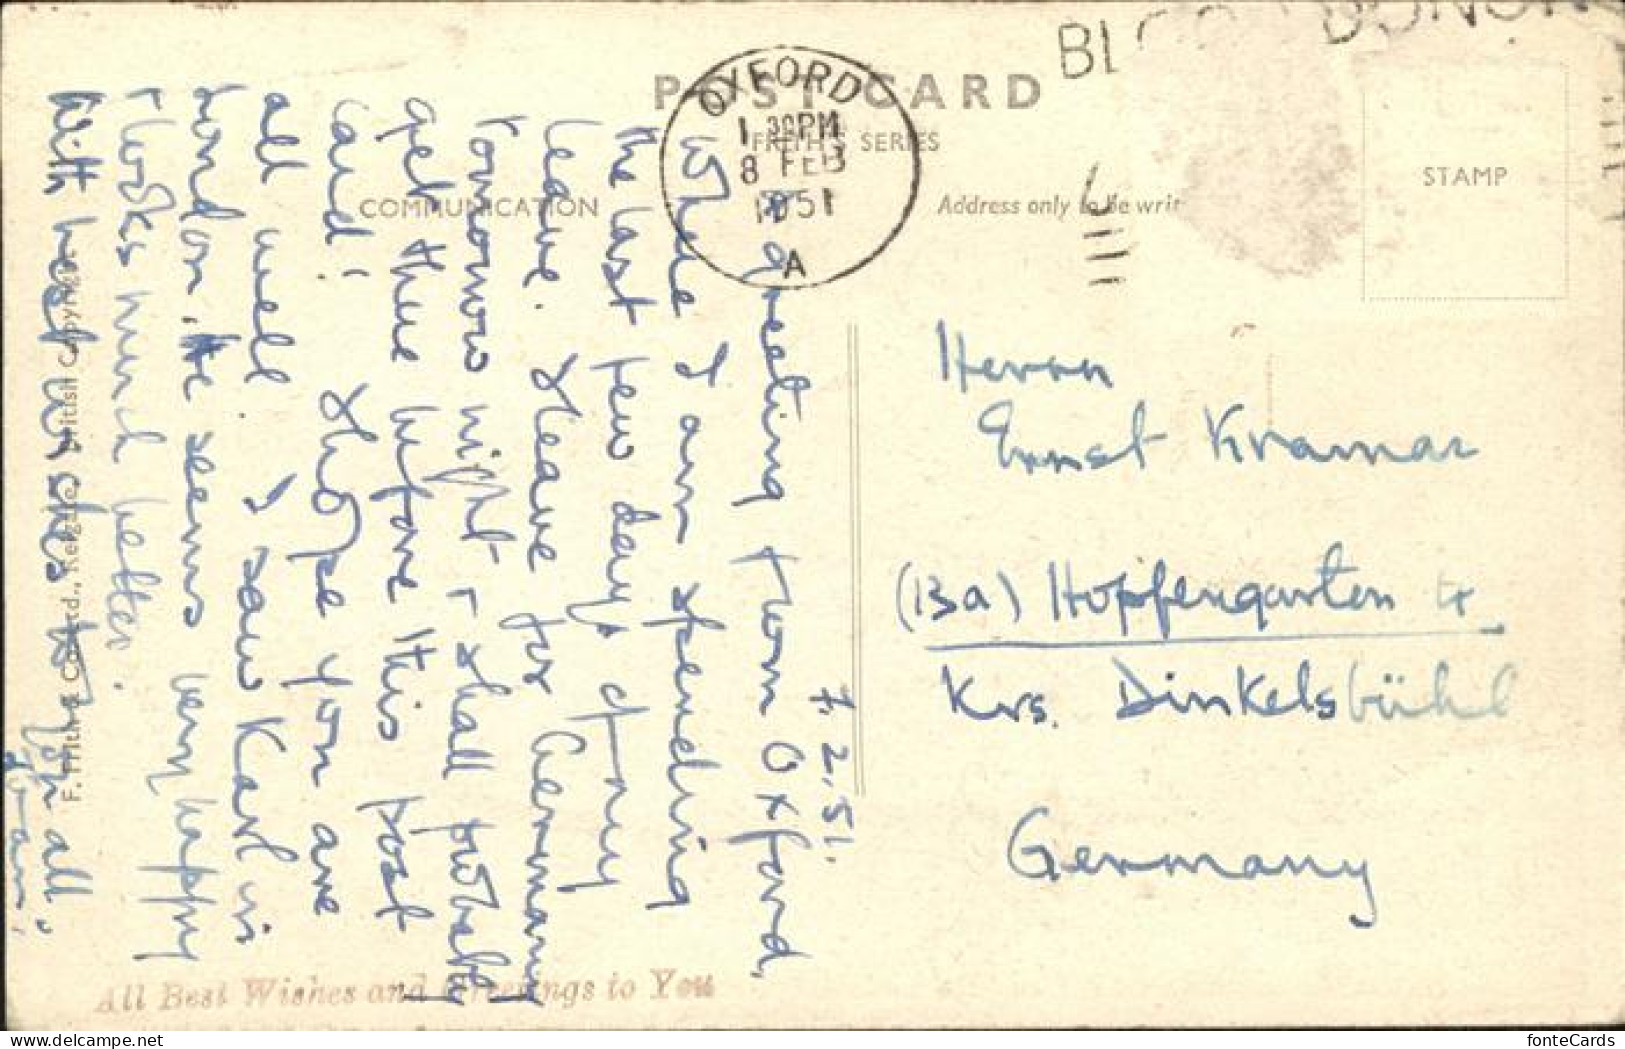 POST CARD
FRITH'S SERIES
COMMUNICATION
Address only to be writ
STAMP
OXFORD
1 30PM
8 FEB
1951
A
7.2.51.
a greeting from Oxford,
Where I am spending
the last few days of my
leave. I leave for Germany
tomorrow night & shall probably
get there before this post
card! I hope you are
all well. I saw Karl in
London, He seems very happy
& looks much better.
With best wishes to you all,
Joan.
F. Frith & Co. Ltd., Reigate British Copyright
All Best Wishes and Greetings to You
Herrn
Ernst Kramar
(13a) Hopfengarten
Krs. Dinkelsbühl
Germany
fonteCards